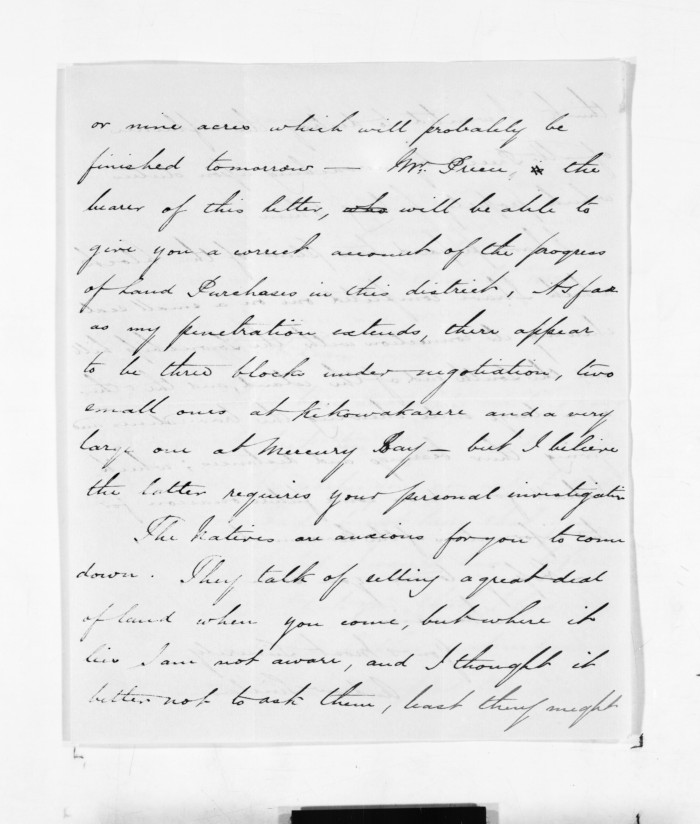 or nine acres which will probably be
finished tomorrow — Mr. Preece, the
bearer of this letter, who will be able to
give you a correct account of the progress
of Land Purchases in this district, As far
as my penetration extends, there appear
to be three blocks under negotiation, two
small ones at Kikowakarere and a very
large one at Mercury Bay — but I believe
the latter requires your personal investigation
The Natives are anxious for you to come
down. They talk of selling a great deal
of land when you come, but where it
lies I am not aware, and I thought it
better not to ask them, least they might